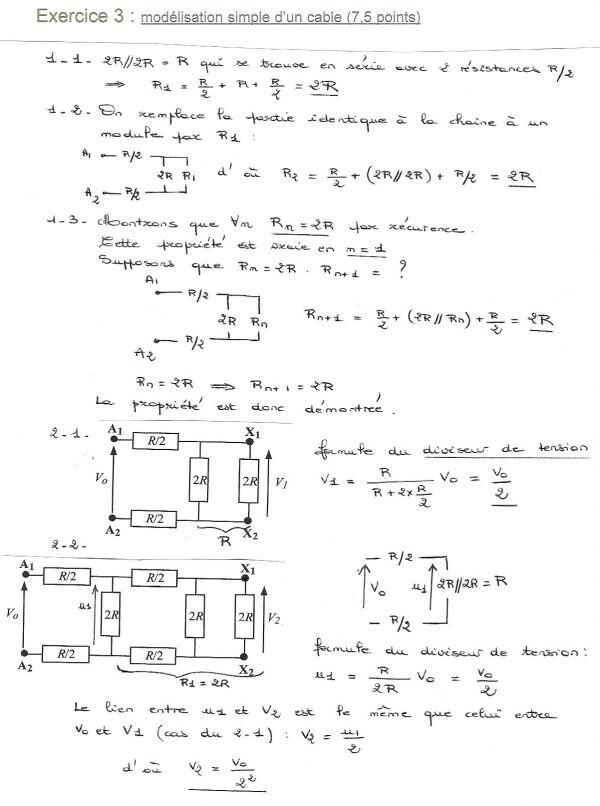 Exercice 3 : modélisation simple d'un cable (7,5 points)
1-1- 2R//2R = R qui se trouve en série avec 2 résistances R/2
⟹ R1 = R/2 + R + R/2 = 2R
1-2- On remplace la partie identique à la chaine à un
module par R1 :
A1 R/2
2R R1 d'où R2 = R/2 + (2R//2R) + R/2 = 2R
A2 R/2
1-3- Montrons que ∀n Rn = 2R par récurence.
Cette propriété est vraie en n = 1
Supposons que Rn = 2R. Rn+1 = ?
A1
R/2
2R Rn Rn+1 = R/2 + (2R//Rn) + R/2 = 2R
R/2
A2
Rn = 2R ⟹ Rn+1 = 2R
La propriété est donc démontrée.
2-1- A1 R/2 X1
V0 2R 2R V1
A2 R/2 X2
R
formule du diviseur de tension
V1 = R/(R + 2×R/2) V0 = V0/2
2-2-
A1 R/2 R/2 X1
V0 u1 2R 2R V2
A2 R/2 R/2 X2
R1 = 2R
R/2
V0 u1 2R//2R = R
R/2
formule du diviseur de tension :
u1 = R/2R V0 = V0/2
Le lien entre u1 et V2 est le même que celui entre
V0 et V1 (cas du 2-1) : V2 = u1/2
d'où V2 = V0/2²